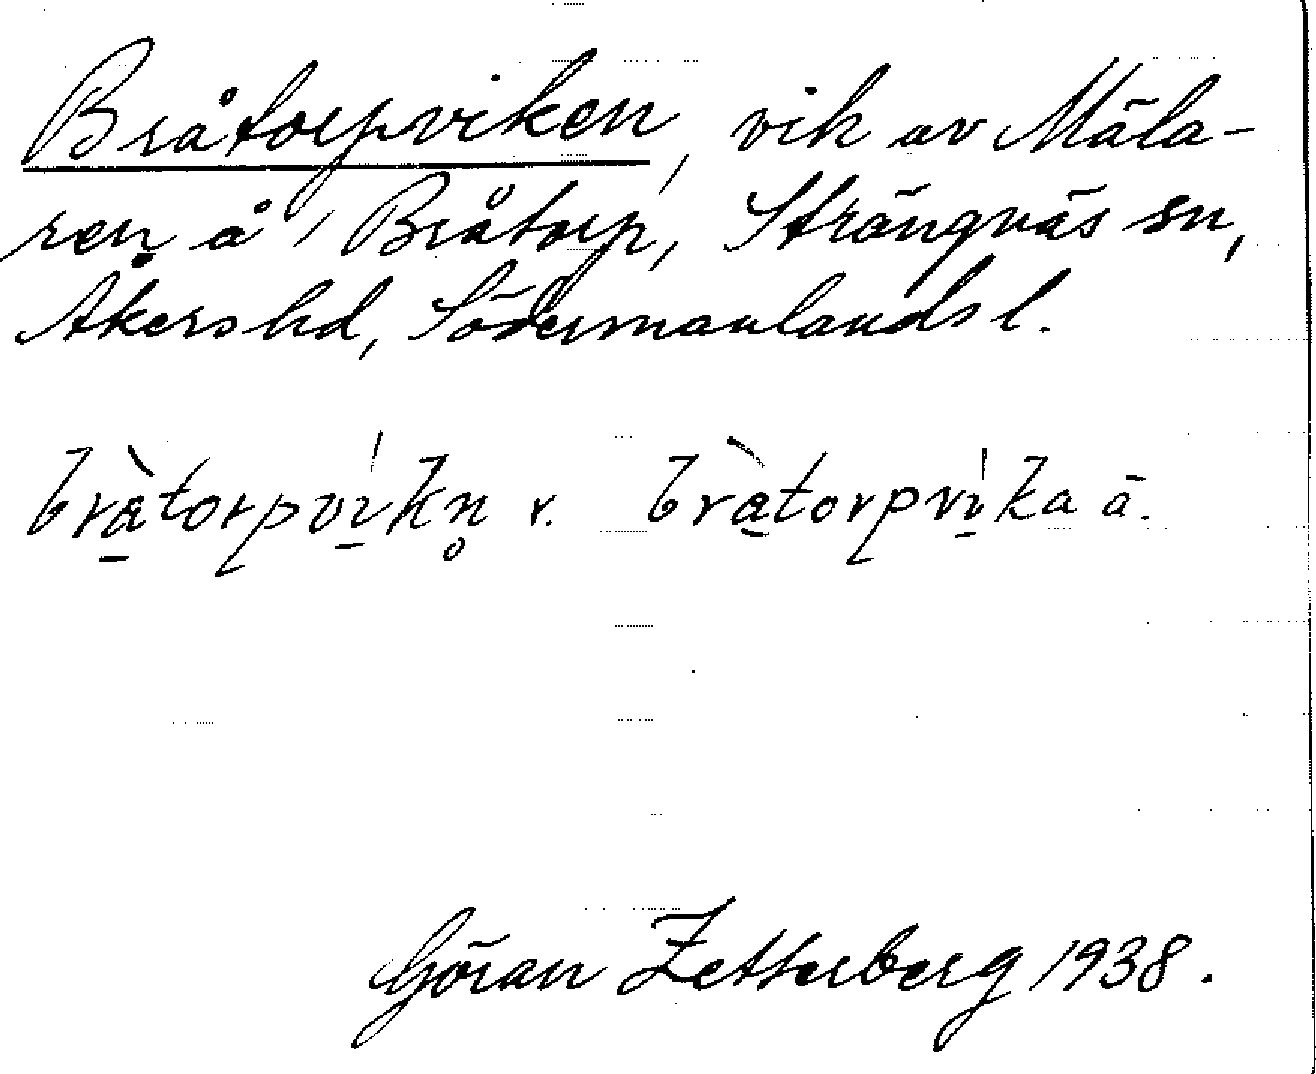 Bråtorpviken, vik av Mäla-
ren å Bråtorp, Strängnäs sn,
Åkers hd, Södermanlands l.
brå̀torpvíkn̥ r. brå̀torpvíka ä.
Göran Zetterberg 1938.